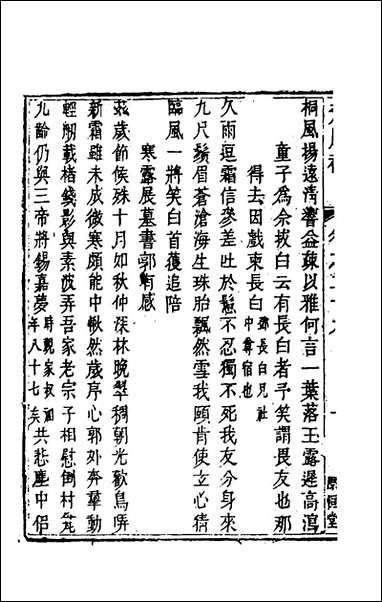 桐風揚遠淸響益疎以雅何言一葉落玉露遲高瀉
童子為余拔白云有長白者予笑謂畏友也那
得去因戲柬長白鄧長白兄社
中尊宿也
久雨逗霜信參差吐於鬚不忍獨不死我友分身來
九尺鬚眉蒼滄海生珠胎飄然雪我頤肯使立心猜
臨風一將笑白首獲追陪
寒露展墓書郭有感
茲歲節候殊十月如秋仲深林晩翠稠朝光歡鳥哢
新霜雖未成微寒頗能中愀然歲序心郭外奔羣動
輕舠載楮錢影與素波弄吾家老宗子相慰倒村瓮
九齡仍與三帝將錫嘉夢時覲家叔祖
年八十七矣共悲塵中侶